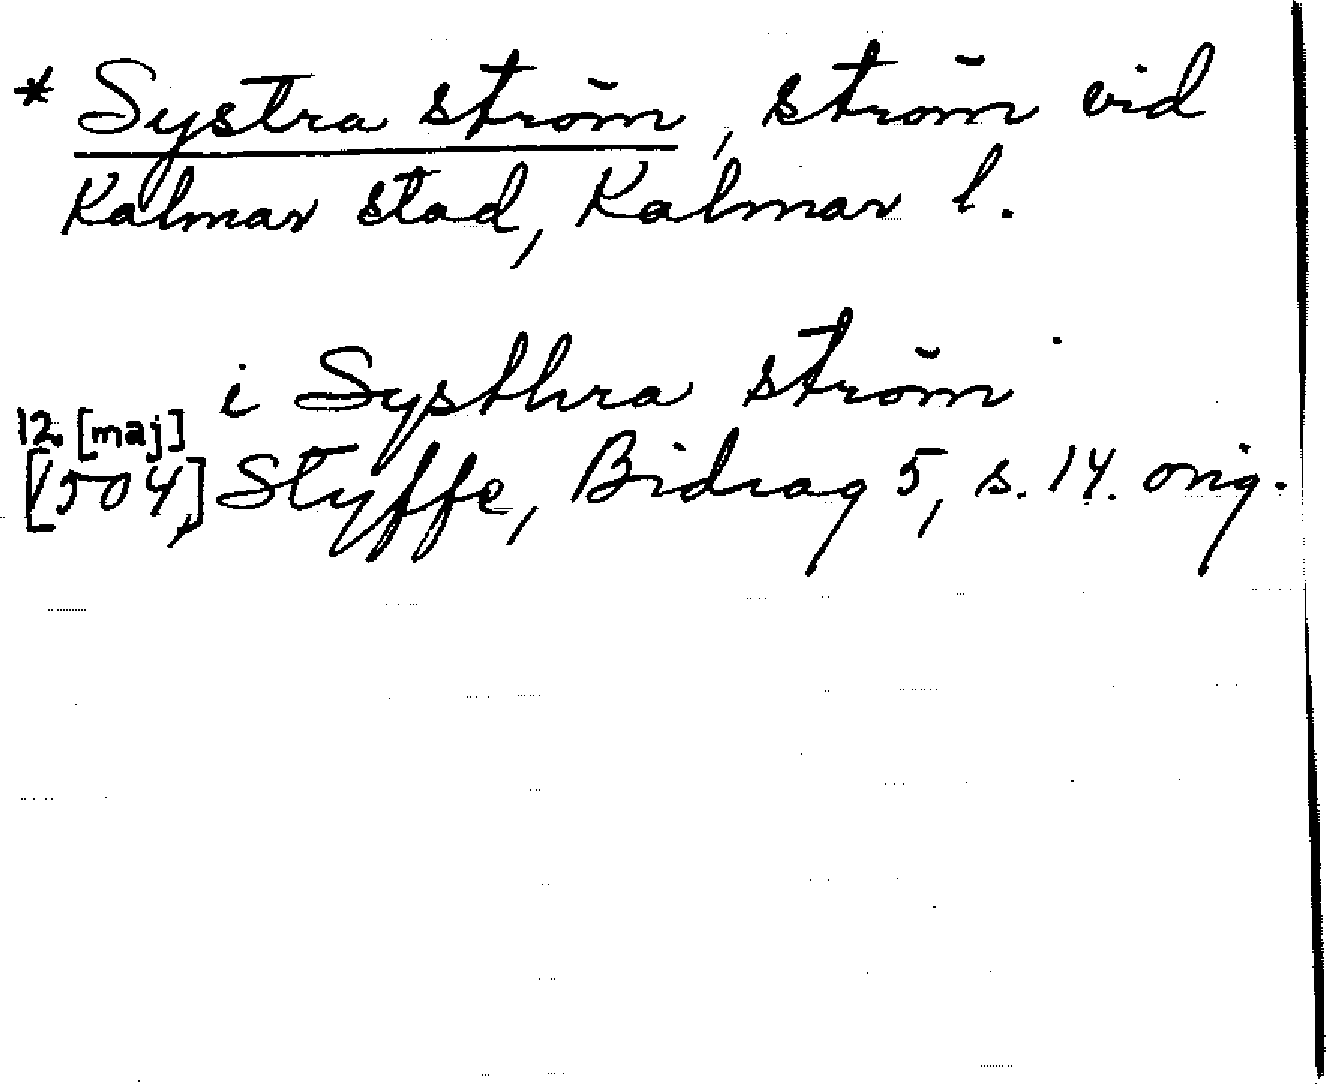 * Systra ström, ström vid
Kalmar stad, Kalmar l.
i Systhra ström
12. [maj]
[1504] Styffe, Bidrag 5, s. 14. orig.